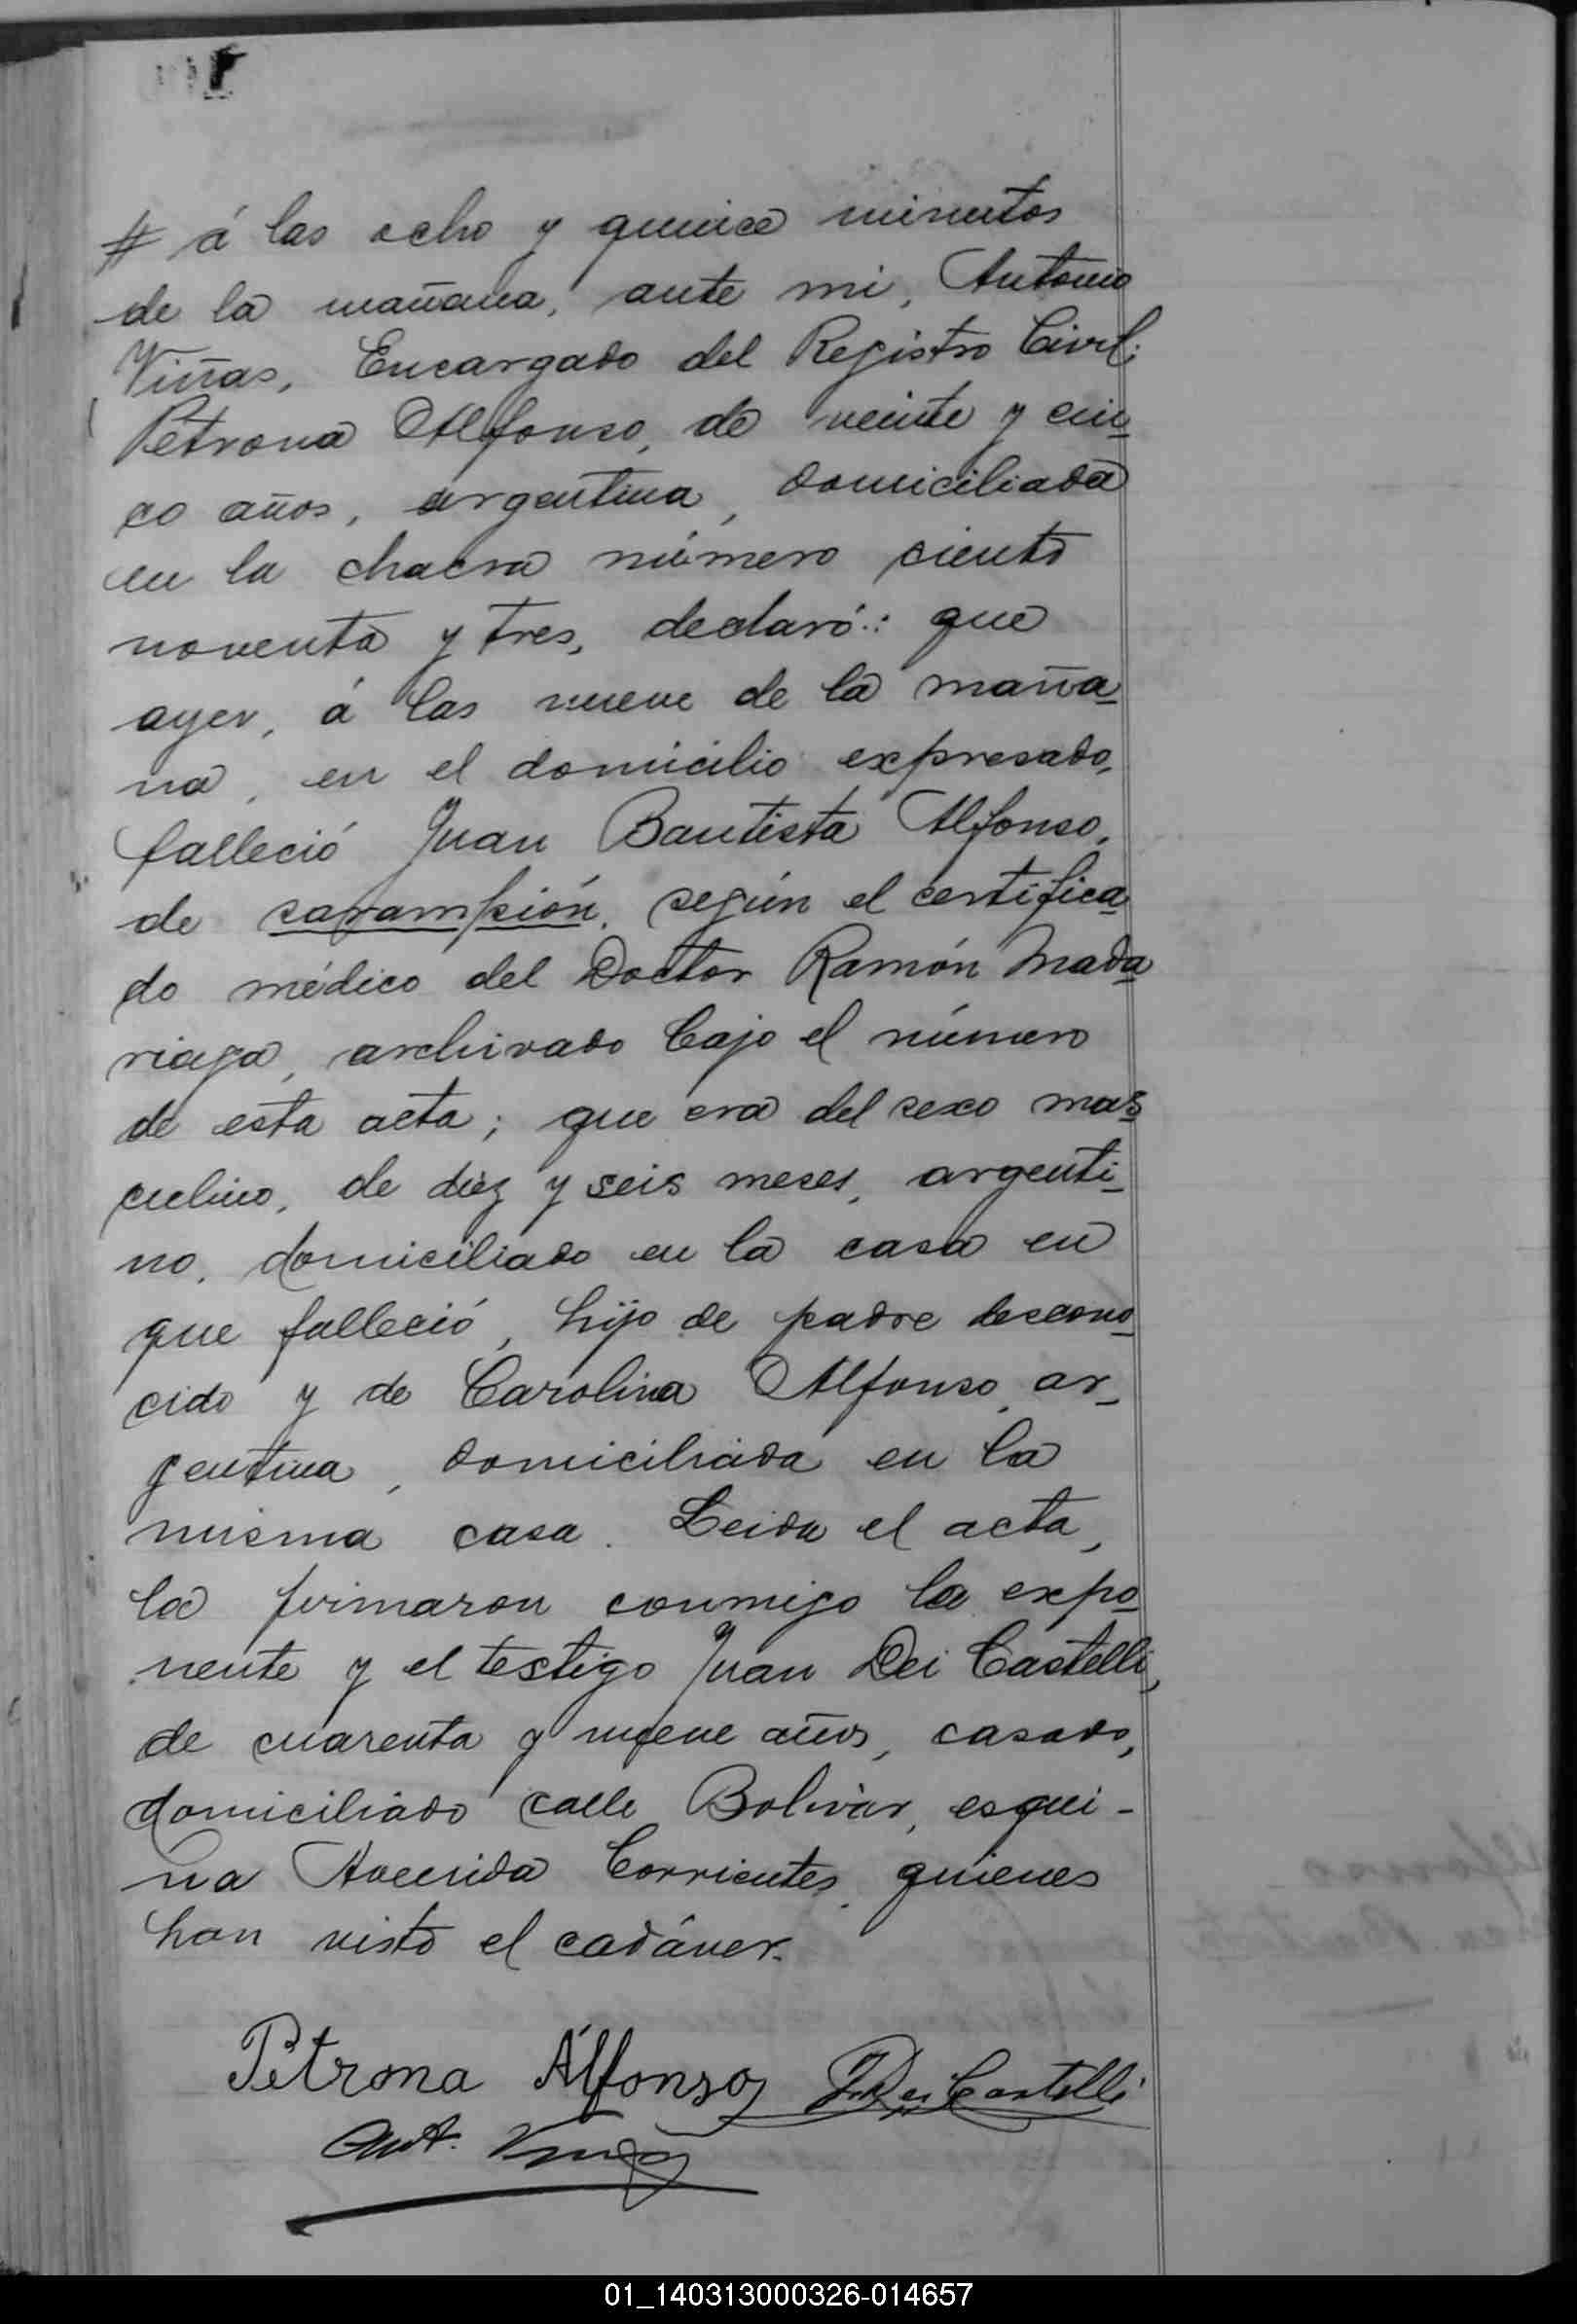 # á las ocho y quince minutos
de la mañana, ante mi, Antonio
Viñas, Encargado del Registro Civil:
Petrona Alfonso, de veinte y cin_
co años, argentina, domiciliada
en la chacra número ciento
noventa y tres, declaró: que
ayer, á las nueve de la maña_
na, en el domicilio expresado,
falleció Juan Bautista Alfonso,
de sarampión, según el certifica_
do médico del Doctor Ramón Mada_
riaga, archivado bajo el número
de esta acta; que era del sexo mas_
culino, de diez y seis meses, argenti_
no, domiciliado en la casa en
que falleció, hijo de padre descono_
cido y de Carolina Alfonso, ar_
gentina, domiciliada en la
misma casa. Leida el acta,
la firmaron conmigo la expo_
nente y el testigo Juan Dei Castelli,
de cuarenta y nueve años, casado,
domiciliado calle Bolivar, esqui-
na Avenida Corrientes, quienes
han visto el cadáver.
Petrona Alfonso J. Dei Castelli
Ant. Viñas
01_140313000326-014657